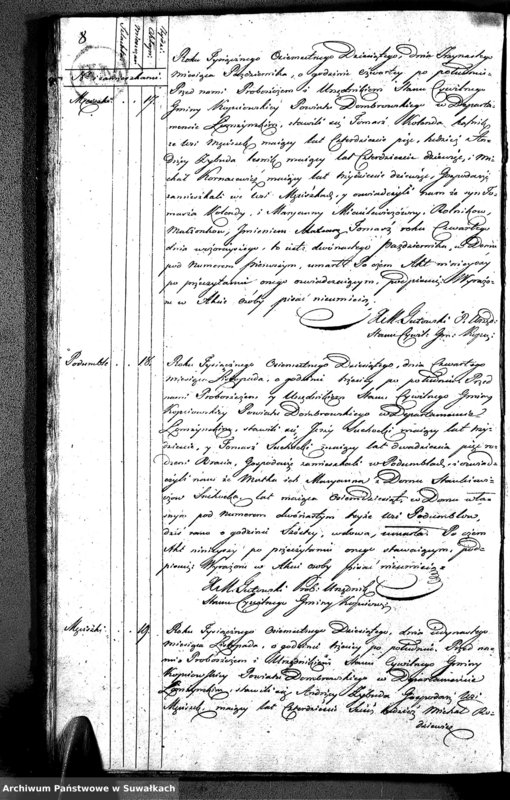 8
Mieszkami.
17.
Roku Tysiącznego Osiemsetnego Dziesiątego, dnia Trzynastego
miesiąca Października, o godzinie czwartey po południu
Przed nami Proboszczem i Urzędnikiem Stanu Cywilnego
Gminy Kopciowskiey Powiatu Dombrowskiego w Departa-
mencie Łomżyńskim, stawili się Tomasz Kolenda,
ze wsi maiący lat Czterdzieście pięć, tudziesz An-
drzey Zyburda maiący lat Czterdzieście dziewięć, i Mi-
chał maiący lat trzydzieście dziewięć, Gospodarze
zamieszkali we wsi i oświadczyli nam że syn To-
masza Kolendy, i Maryanny Rolników,
Małżonków, Imieniem Tomasz roku Czwartego
dnia wczorayszego, to iest: dwónastego Października, w Domu
pod Numerem pierwszym, umarł. Po czem Akt ninieyszy
po przeczytaniu onego oświadczaiącym, podpisuię Wyrażo-
ne w Akcie osoby pisać nieumieią.
X. M. Gutowski P. Urzęd:
Stanu Cywil: Gm:
Podumble
18.
Roku Tysiącznego Osiemsetnego Dziesiątego, dnia Czwartego
miesiąca Listopada, o godzinie trzeciey po południu Przed
nami Proboszczem y Urzędnikiem Stanu Cywilnego Gminy
Kopciowskiey Powiatu Dombrowskiego w Departamencie
Łomżyńskim, stawili się Suchocki maiący lat trzy-
dzieście, y Tomasz Suchocki maiący lat dwadzieścia pięć ro-
dzeni Bracia, Gospodarze zamieszkali w Podumblach, i oświad-
czyli nam że Matka ich Maryanna z Domu Stankiewi-
czów Suchocka, lat maiąca Osiemdziesiąt, w Domu włas-
nym pod Numerem dwónastym tejże wsi Podumblów,
dziś rano o godzinie Szóstey, wdowa, umarła. Po czem
Akt ninieyszy po przeczytaniu onego stawaiącym, pod-
pisuię: Wyrażeni w Akcie osoby pisać nieumieią.
X. M. Gutowski Prob: Urzędnik
Stanu Cywilnego Gminy
19.
Roku Tysiącznego Osiemsetnego Dziesiątego, dnia Jedynastego
miesiąca Listopada, o godzinie trzeciey po południu, Przed na-
mi Proboszczem i Urzędnikiem Stanu Cywilnego Gminy
Kopciowskiey Powiatu Dombrowskiego w Departamencie
Łomżyńskim, stawili się Andrzey Zyburda Gospodarz Wsi
maiący lat Czterdzieście Sześć, tudziesz Michał Ra-
dziewicz
Archiwum Państwowe w Suwałkach